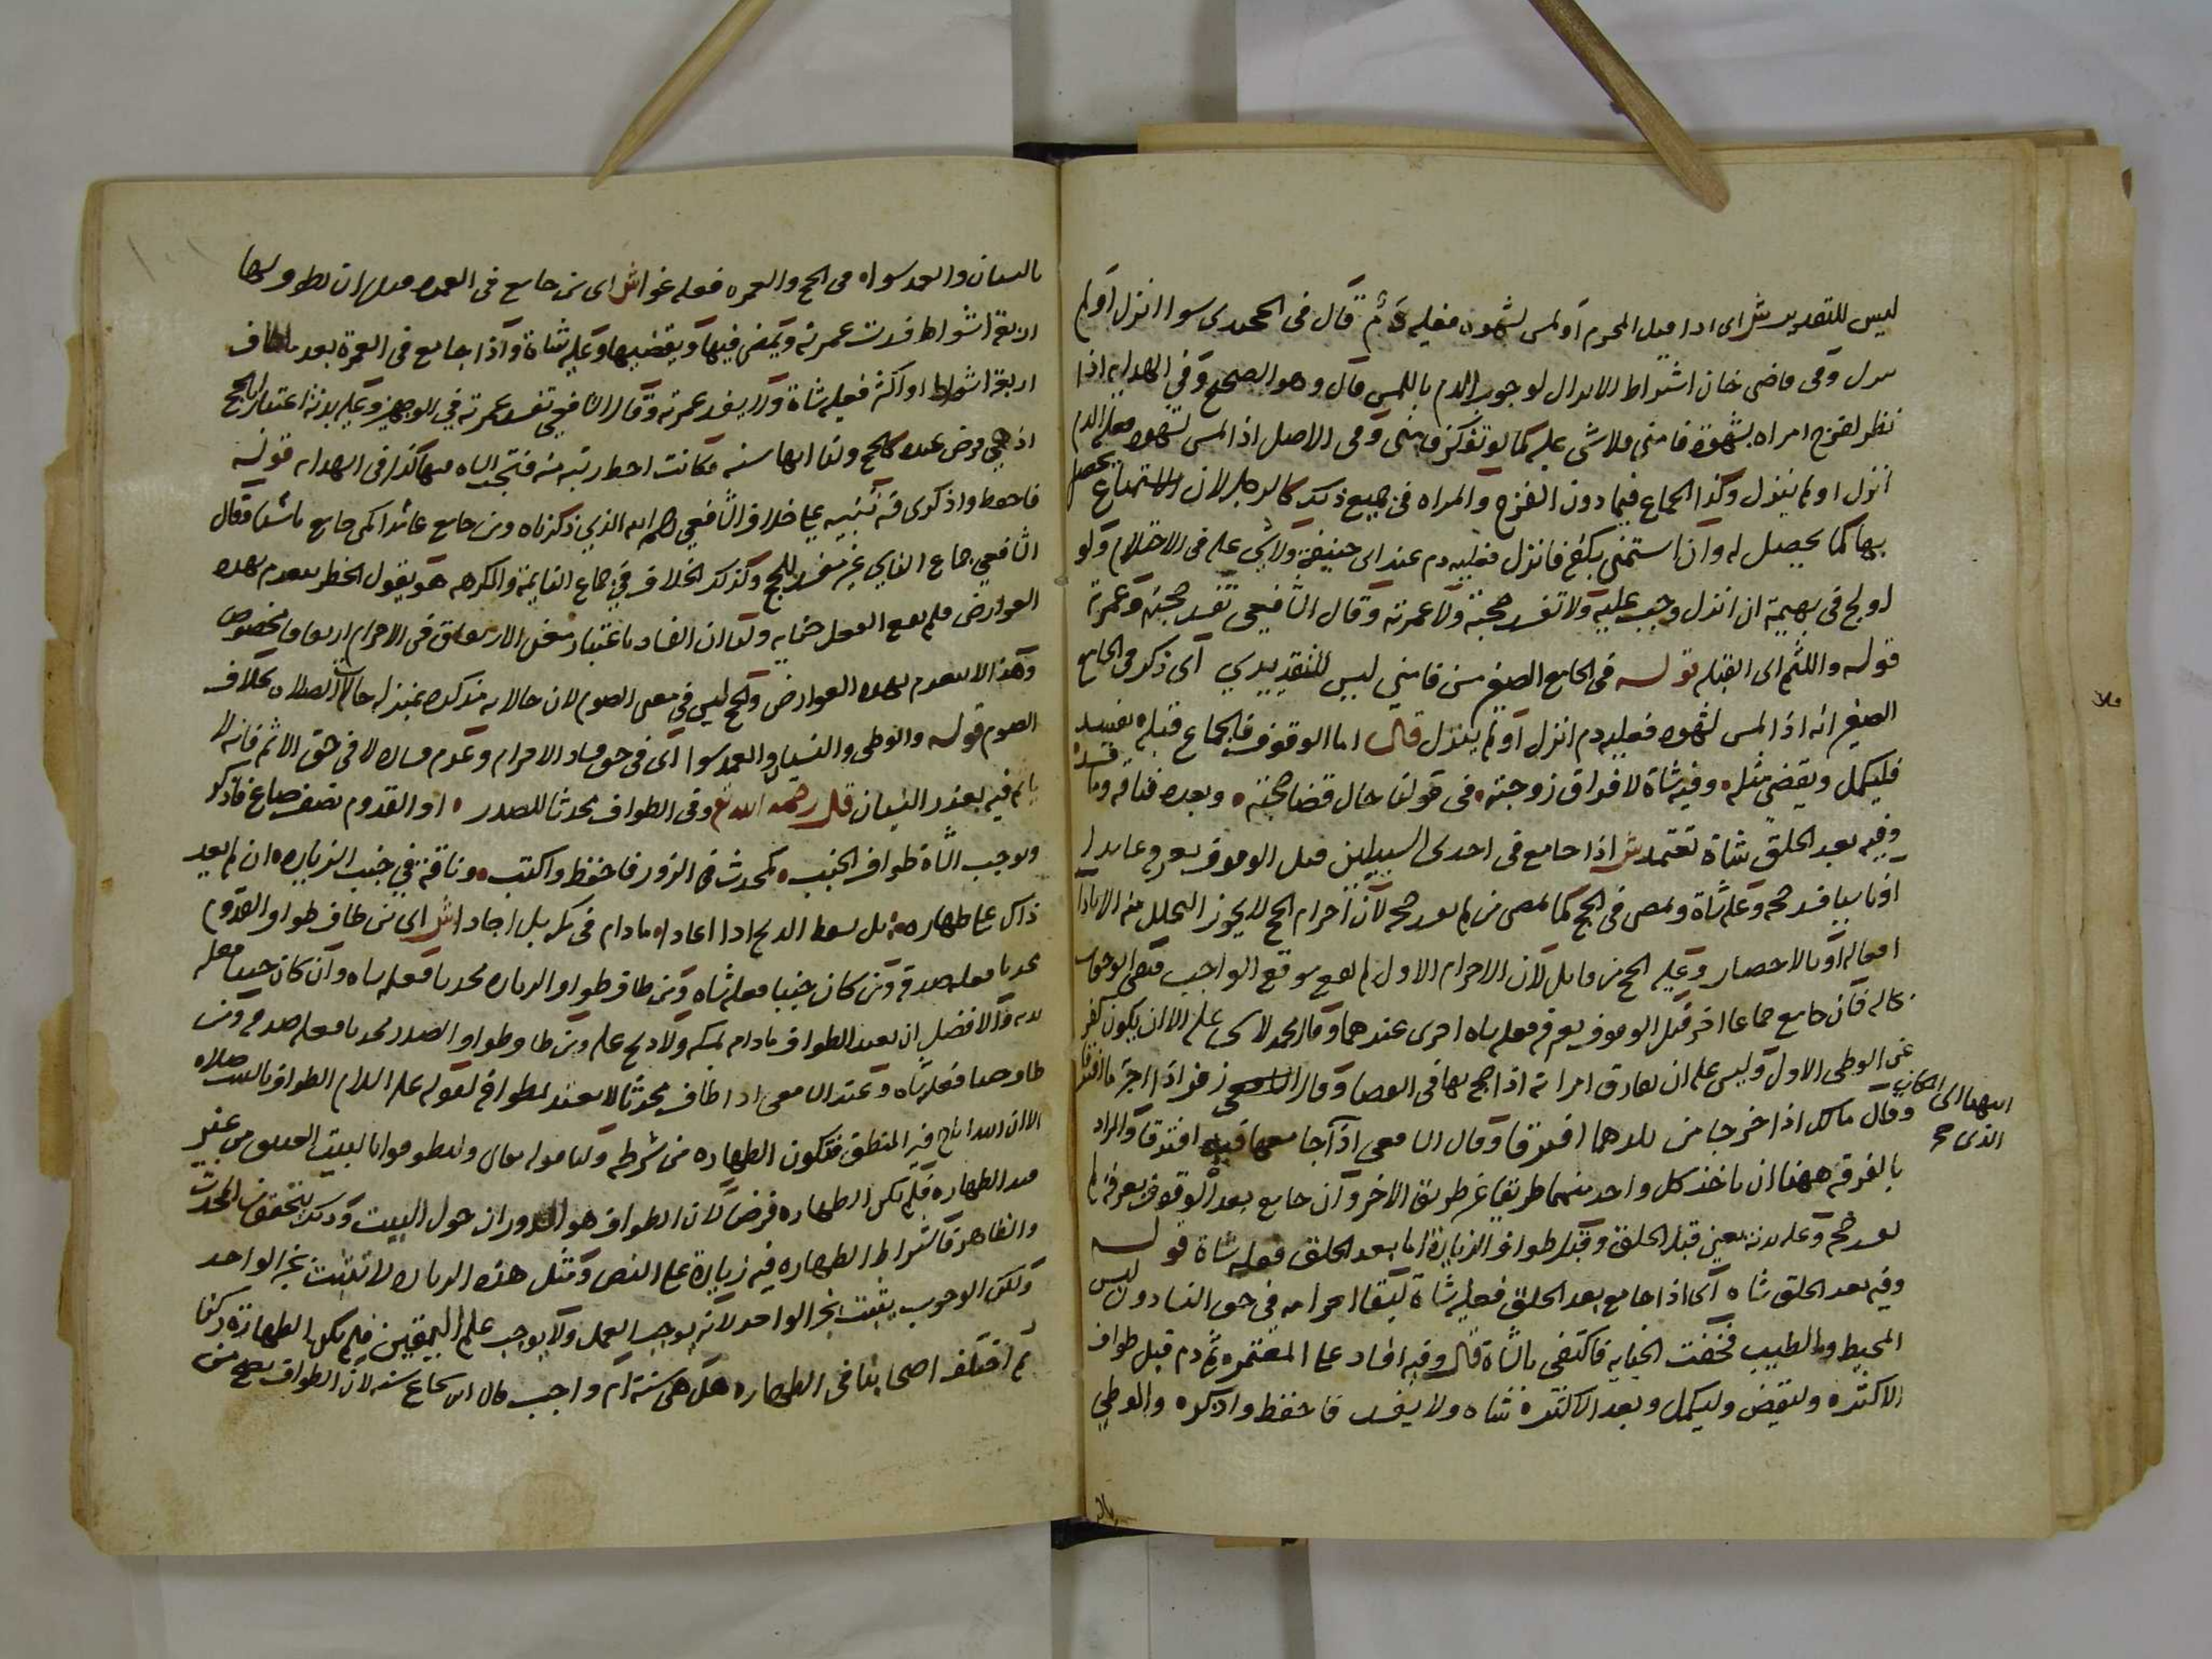 ليس للتقدير ش اى اذا قبل المحرم او لمس بشهوة فعليه دم قال فى الجحدرى سوا انزل او لم
ينزل وفى قاضى خان اشتراط الانزال لوجوب الدم باللمس قال وهو الصحيح وفى الهداية اذا
نظر لفرج امراه بشهوة فامنى فلا شى عليه كما لو تفكر فامنى وفى الاصل اذا لمس بشهوة فعليه الدم
انزل او لم ينزل وكذا الجماع فيما دون الفرج والمراه فى جميع ذلك كالرجل لان الاستمتاع يحصل
بها كما يحصل له وان استمنى بكفه فانزل فعليه دم عند ابى حنيفة ولا شى عليه فى الاحتلام ولو
اولج فى بهيمة ان انزل وجب عليه ولا تفسد حجته ولا عمرته وقال الشافعى تفسد حجته وعمرته
قوله واللثم اى القبلة قوله فى الجامع الصغير من فامنى ليس للتقديرى اى ذكر فى الجامع
الصغير انه اذا لمس بشهوه فعليه دم انزل او لم ينزل قال اما الوقوف فالجماع قبله يفسد
فليكمل ويقضى مثله وفيه شاة لا فراق زوجته فى قولنا حال قضا حجته وبعده فناقة وما فسد
وفيه بعد الحلق شاة تعتمد ش اذا جامع فى احدى السبيلين قبل الوقوف بعرفه عامدا
او ناسيا فسد حجه وعليه شاة ويمضى فى الحج كما يمضى من لم يفسد حجه لان احرام الحج لا يجوز التحلل منه الا باداء
افعاله او بالاحصار وعليه الحج من قابل لان الاحرام الاول لم يقع موقع الواجب فبقى الوجوب
بحاله فان جامع جماعا اخر قبل الوقوف بعرفه فعليه شاه اخرى عندهما وقال محمد لا شى عليه الا ان يكون كفر
عن الوطى الاول وليس عليه ان يفارق امراته اذا حج بها فى القضا وقال زفر اذا احرما افترقا
وقال مالك اذا خرجا من بلدهما افترقا وقال الشافعى اذا جامعها فيه افترقا والمراد
انتهيا الى المكان الذى
بالفرقه ههنا ان ياخذ كل واحد منهما طريقا غير طريق الاخر وان جامع بعد الوقوف بعرفه لم
يفسد حجه وعليه بدنه يعنى قبل الحلق وقبل طواف الزيارة اما بعد الحلق فعليه شاة قوله
وفيه بعد الحلق شاه اى اذا جامع بعد الحلق فعليه شاة لبقا احرامه فى حق النسا دون لبس
المخيط والطيب فخفت الجنايه فاكتفى بالشاة قال وفيه افساد على المعتمره ثم دم قبل طواف
الاكثره وليقض وليكمل وبعد الاكثره شاه ولا يفسد فاحفظ واذكره والوطى
بالنسيان والعمد سواء فى الحج والعمره فعله غو ا ش اى من جامع فى العمره قبل ان يطوف لها
اربعة اشواط فسدت عمرته ويمضى فيها ويقضيها وعليه شاة واذا جامع فى العمرة بعد ما طاف
اربعة اشواط او اكثر فعليه شاة ولا يفسد عمرته وقال الشافعى تفسد عمرته فى الوجهين وعليه بدنة اعتبارا بالحج
اذ هى فرض عنده كالحج ولنا انها سنه فكانت احط رتبه منه فتجب الشاه فيها كذا فى الهدايه قوله
فاحفظ واذكر فيه تنبيه على خلاف الشافعى رحمه الله الذى ذكرناه ومن جامع عامدا كمن جامع ناسيا وقال
الشافعى جماع الناسى غير مفسد للحج وكذلك الخلاف فى جماع النايمة والمكرهه هو يقول الحظر ينعدم بهذه
العوارض فلم يقع الفعل جنايه ولنا ان الفساد باعتبار معنى الارتفاق فى الاحرام ارتفاقا مخصوصا
وهذا لا ينعدم بهذه العوارض والحج ليس فى معنى الصوم لان حالاته مذكره بمنزله حالات الصلاه بخلاف
الصوم قوله والوطى والنسيان والعمد سوا اى فى حق فساد الاحرام وعدم فساده لا فى حق الاثم فانه لا
ياثم فيه بعذر النسيان قال رحمه الله وفى الطواف محدثا للصدر او القدوم نصف صاع فاذكر
ويوجب الشاة طواف الجنب كمحدث فى الزور فاحفظ واكتب وناقة فى جنب الزياره ان لم يعد
ذاك على طهاره بل يسقط الذبح اذا اعادا ما دام فى مكه بل اجادا ش اى من طاف طواف القدوم
محدثا فعليه صدقه ومن كان جنبا فعليه شاه ومن طاف طواف الزياره محدثا فعليه شاه وان كان جنبا فعليه
بدنه والافضل ان يعيد الطواف ما دام بمكه ولا ذبح عليه ومن طاف طواف الصدر محدثا فعليه صدقه ومن
طاف جنبا فعليه شاه وعند الشافعى اذا طاف محدثا لا يعتد بطوافه لقوله عليه السلام الطواف بالبيت صلاه
الا ان الله اباح فيه المنطق فتكون الطهاره من شرطه ولنا قوله تعالى وليطوفوا بالبيت العتيق من غير
قيد الطهارة فلم تكن الطهاره فرضا لان الطواف هو الدوران حول البيت وذلك يتحقق من المحدث
والطاهر فاشتراط الطهاره فيه زيادة على النص ومثل هذه الزياده لا تثبت بخبر الواحد
ولكن الوجوب يثبت بخبر الواحد لانه يوجب العمل ولا يوجب علم اليقين فلم تكن الطهارة ركنا
ثم اختلف اصحابنا فى الطهاره هل هى سنة ام واجب قال ابن شجاع سنه لان الطواف يصح من